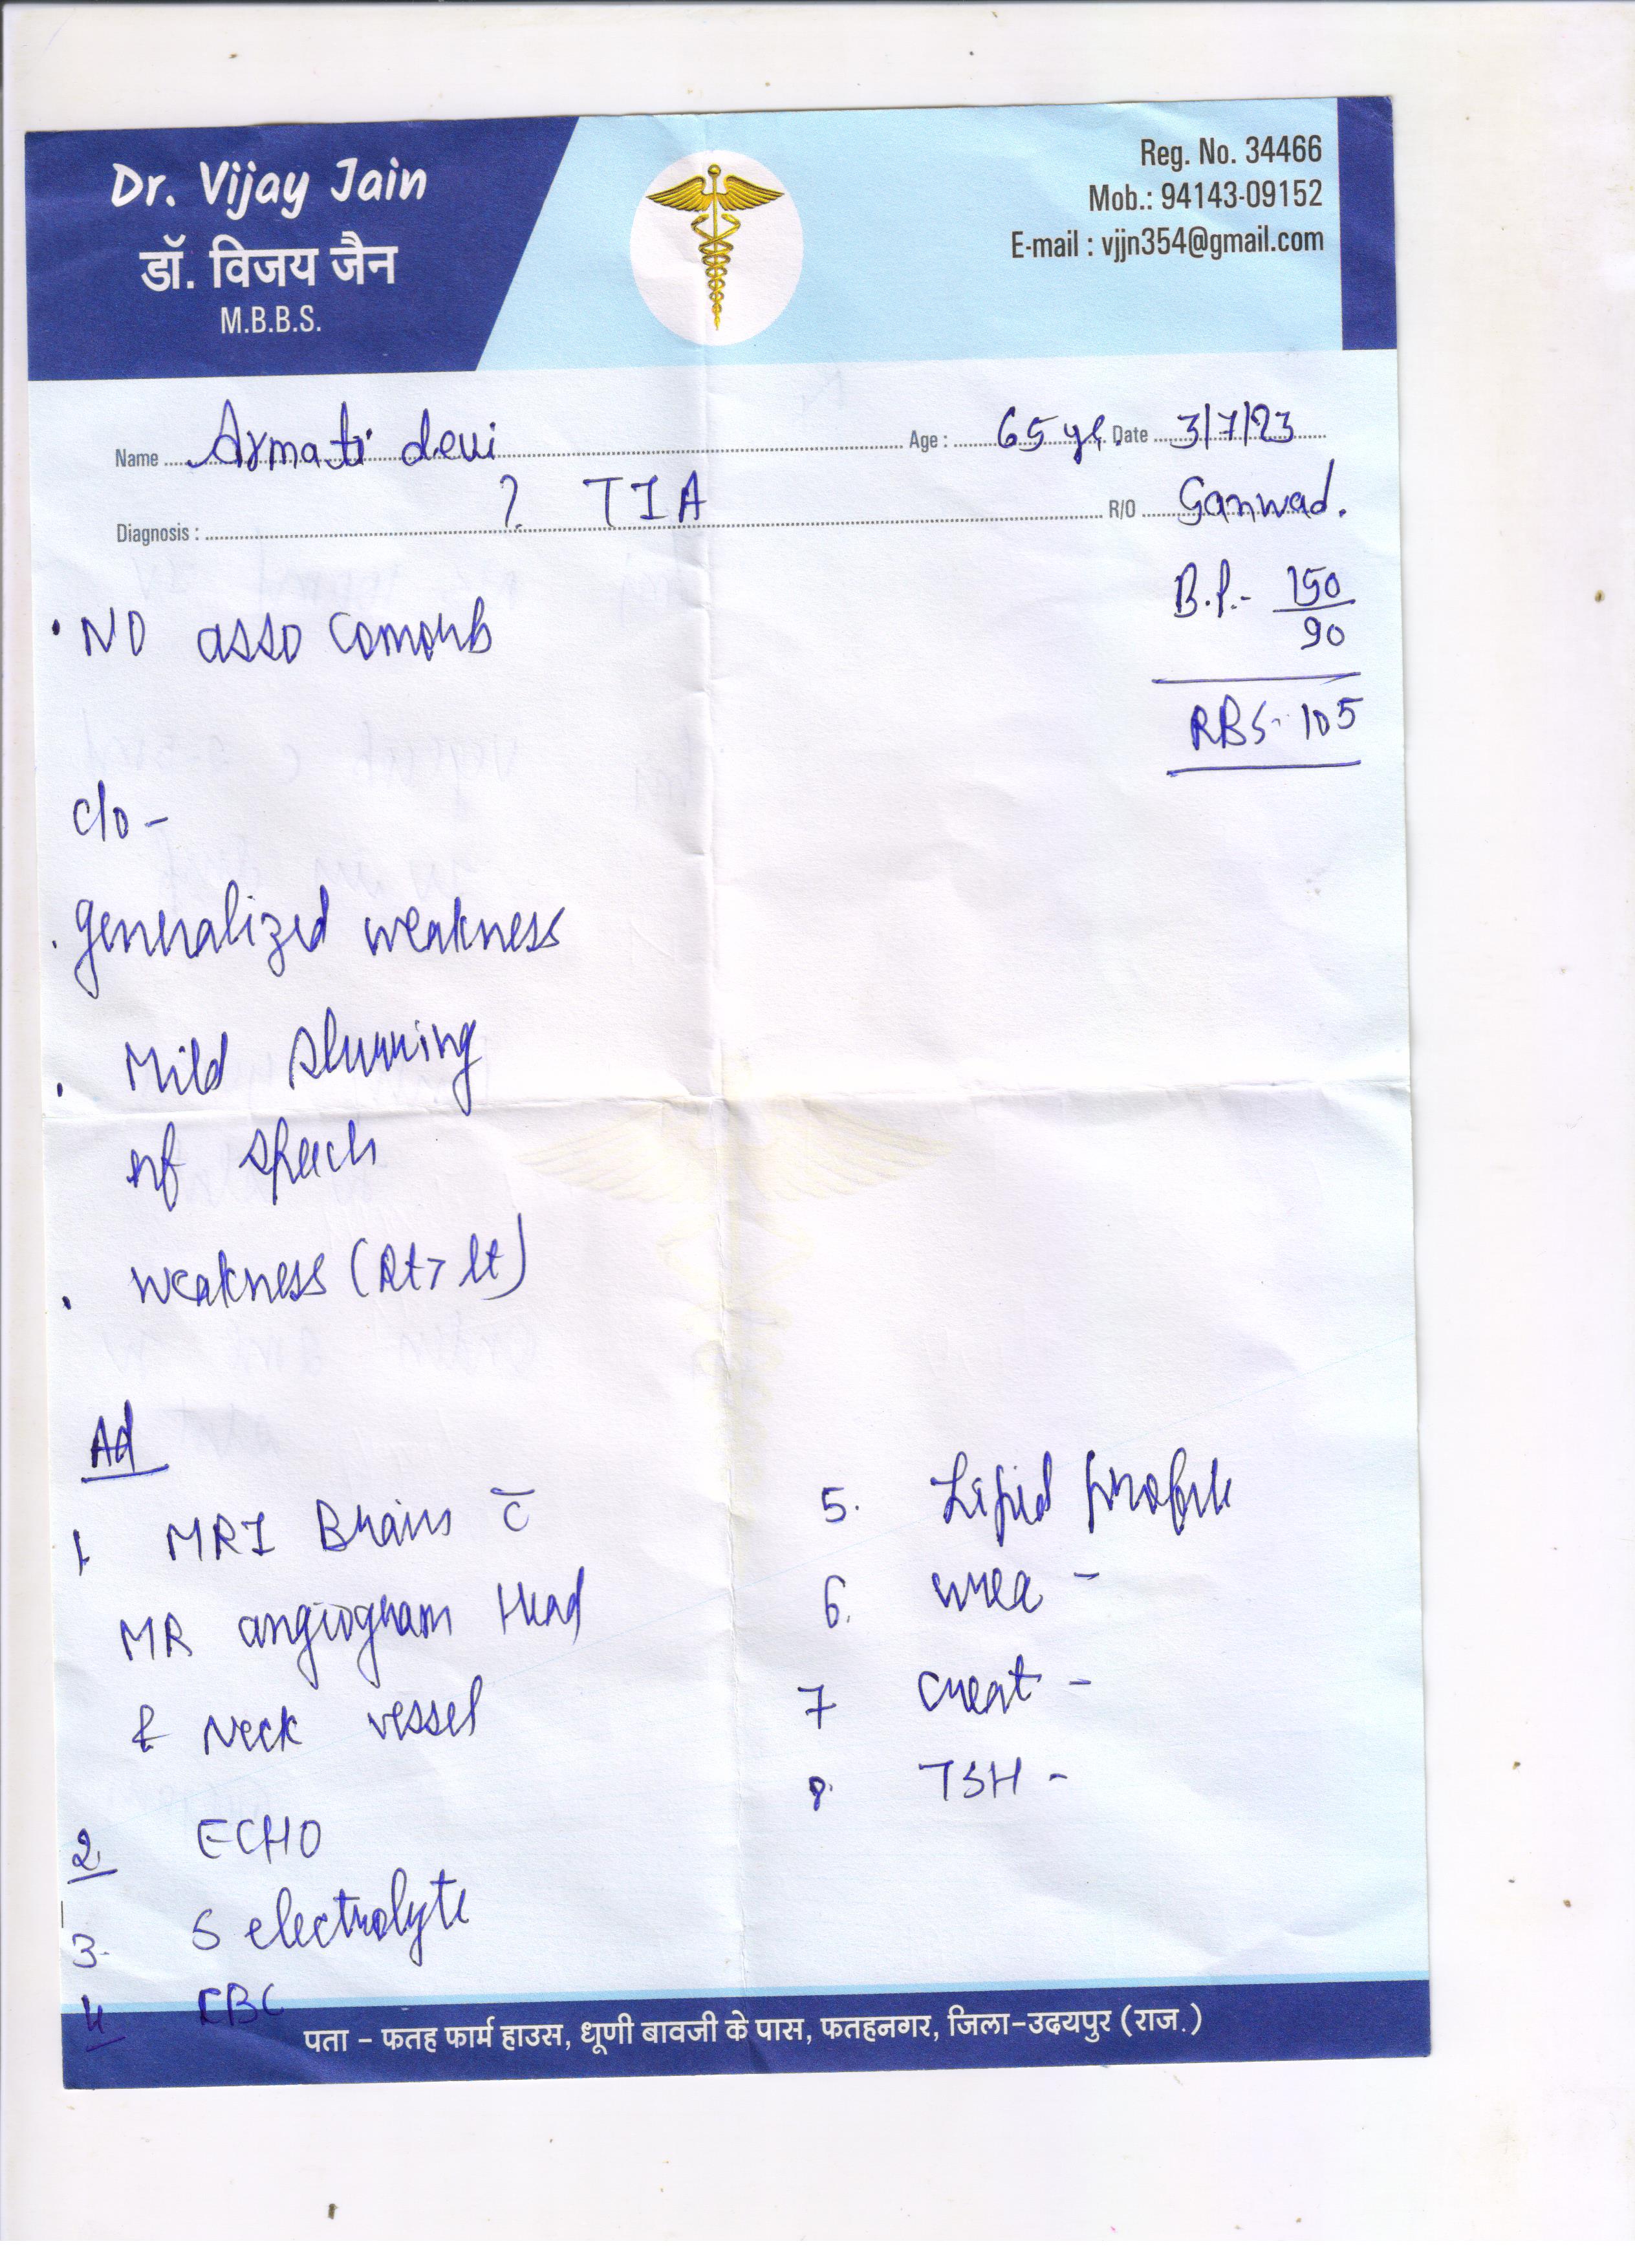 Dr. Vijay Jain
डॉ. विजय जैन
M.B.B.S.
Reg. No. 34466
Mob.: 94143-09152
E-mail : vjjn354@gmail.com
Name Armati devi Age : 65 yr. Date 3/7/23
Diagnosis : ? TIA R/O Ganwad.
B.P.- 150/90
RBS- 105
• NO asso comorb
c/o -
. generalized weakness
. Mild slurring
of speech
. weakness (Rt > lt)
Ad
1. MRI Brain c̄
MR angiogram Head
& Neck vessel
2. ECHO
3. S electrolyte
4 CBC
5. Lipid profile
6. urea -
7 creat -
8. TSH -
पता – फतह फार्म हाउस, धूणी बावजी के पास, फतहनगर, जिला-उदयपुर (राज.)